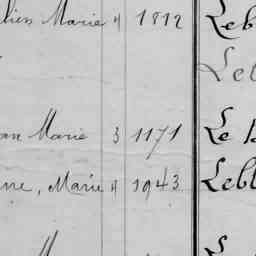 lien Marie 4 1812 Leb
Le
an Marie 3 1171 Le
ne, Marie 4 1943 Lebl